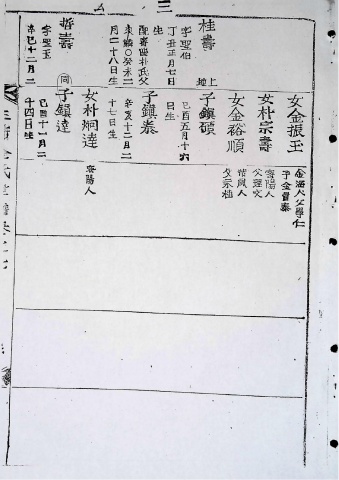 女金振玉
金海人父學仁
子金貴泰
女朴宗壽
密陽人
父理文
女金裕順
父示植
子鎭碩
己酉五月十六
日生
子鎭泰
辛亥十二月二
十七日生
女朴炯達
密陽人
子鎭達
己酉十一月二
十四日生
桂壽
地上
字聖伯
丁丑正月七日
生
配密陽朴氏父
癸未二
月二十八日生
哲壽
同
字聖玉
辛巳十二月二